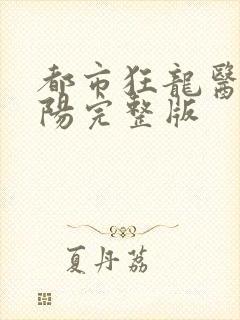 都市狂龍醫
陽完整版
夏丹荔